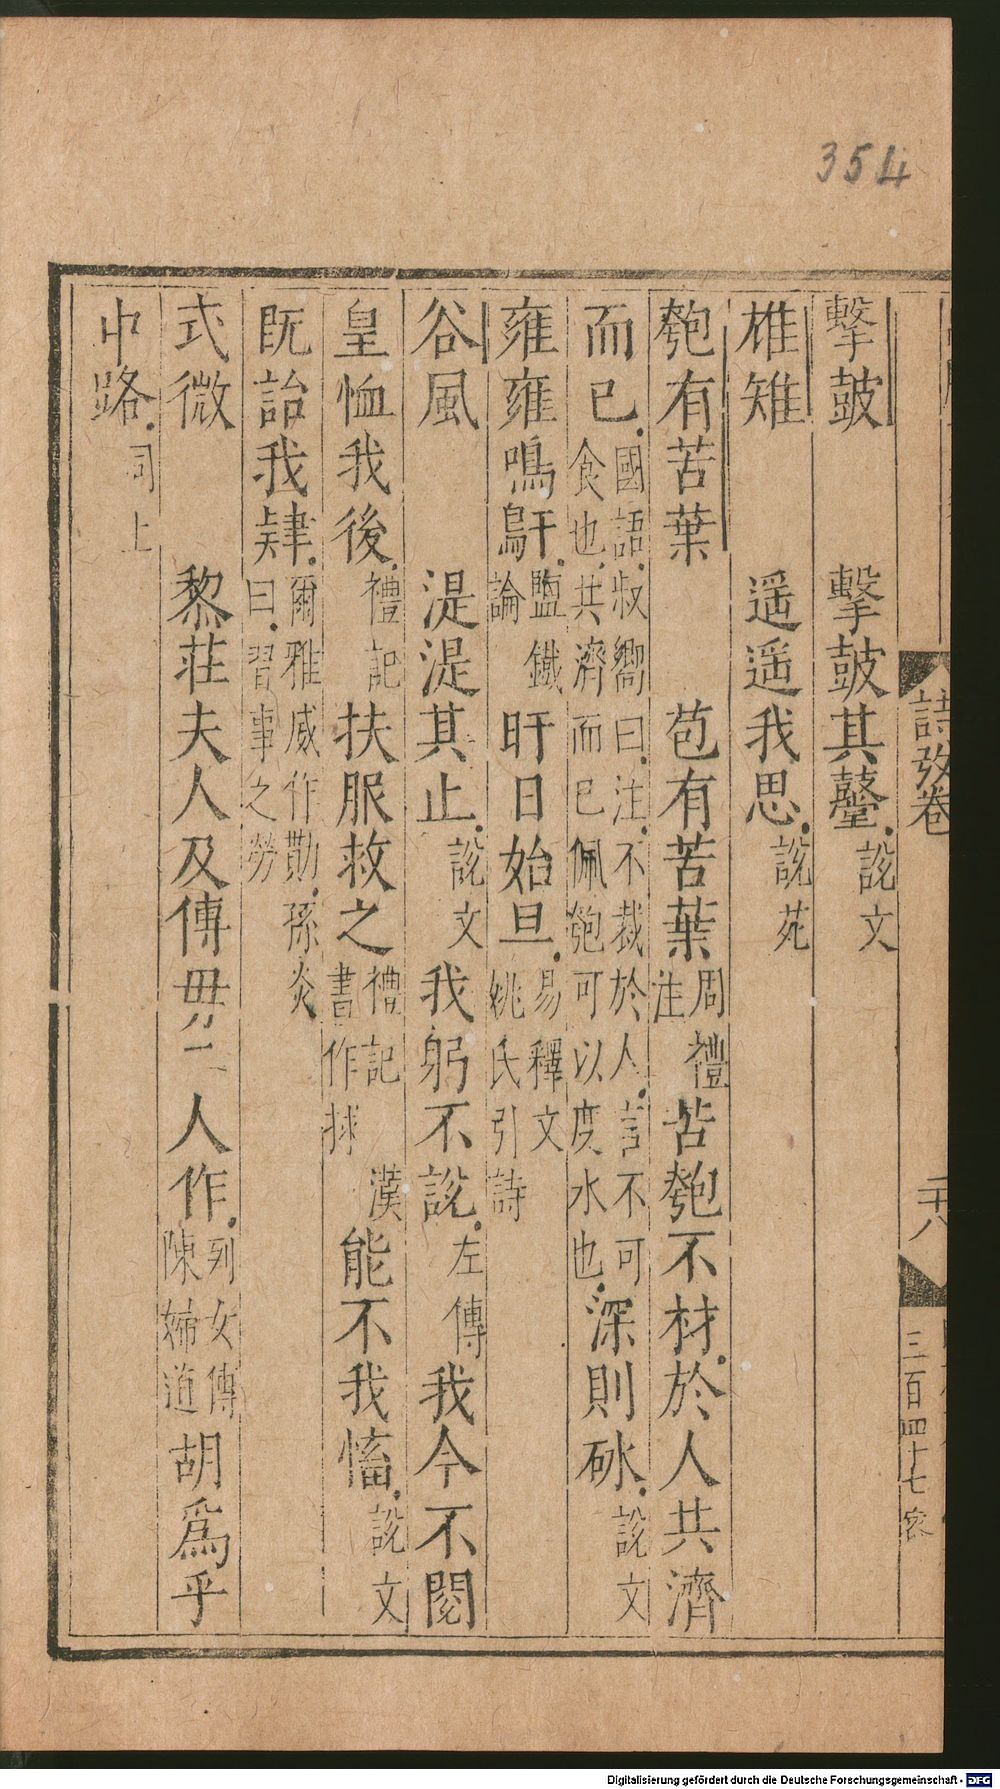 354
擊鼓　擊鼓其鼞說文
雄雉　遥遥我思說苑
匏有苦葉　苞有苦葉周禮注苦匏不材於人共濟
而已國語叔嚮曰注不裁於人言不可食也共濟而已佩匏可以度水也深則砅說文
雍雍鳴鳱鹽鐵論旰日始旦易釋文姚氏引詩
谷風　湜湜其止說文我躬不說左傳我今不閱
皇恤我後禮記扶服救之禮記漢書作捄能不我慉說文
既詒我肄爾雅威作勩孫炎曰習事之勞
式微　黎莊夫人及傅毋二人作列女傳陳婦道胡爲乎
中路同上
詩攷卷
三百四十七
Digitalisierung gefördert durch die Deutsche Forschungsgemeinschaft - DFG